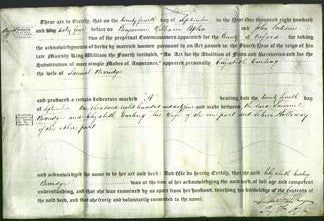 These are to Certify, that on the twenty fourth day of September in the Year One thousand eight hundred
and sixty four before Benjamin William and John
two of the perpetual Commissioners appointed for the County of Oxford for
taking the acknowledgments of deeds by married women pursuant to an Act passed in the Fourth Year of the reign of his
late Majesty King William the Fourth intituled, "An Act for the Abolition of Fines and Recoveries and for the
Substitution of more simple Modes of Assurance," appeared personally Elizabeth
wife of Samuel
and produced a certain Indenture marked "A" bearing date the twenty fourth day
of September One thousand eight hundred and sixty four and made between the said Samuel
and Elizabeth his wife of the one part and Holloway
of the other part
and acknowledged the same to be her act and deed: And We do hereby Certify, that the said Elizabeth
was at the time of her acknowledging the said deed, of full age and competent
understanding, and that she was examined by us apart from her husband, touching her knowledge of the contents of
the said deed, and that she freely and voluntarily consented to the same.